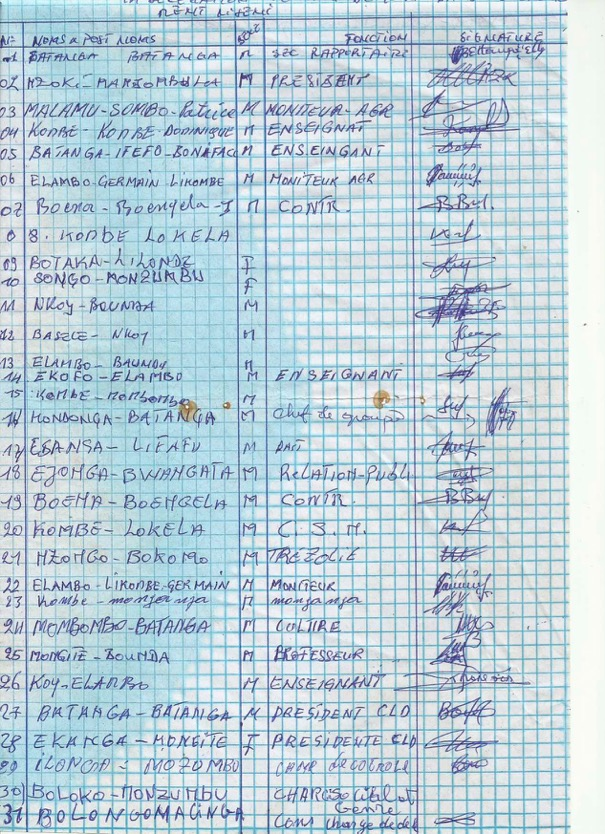 N° NOMS & POST NOMS FONCTION SIGNATURE
01 BATANGA BATANGA M SEC RAPPORTAIRE
02 NZOKI-MANZOMBOLA M PRESIDENT
03 MALAMU-SOMBO-Patrice M MONITEUR-AGR
04 KOMBE-KOMBE-DOMINIQUE M ENSEIGNAT
05 BATANGA-IFEFO-BONAFACE M ENSEINGANT
06 ELAMBO-GERMAIN LIKOMBE M MONITEUR AGR
07 Boema-Boengela-I M CONTR. BBul.
08. KOMBE LOKELA
09 BOTAKA-LILONDE F
10 SONGO-MONZUMBU F
11 NKOY-BOUNDA M
12 BASELE-NKOY M
13 ELAMBO-BAUNDA M
14 EKOFO-ELAMBO M ENSEIGNANT
15 KOMBE-MOMBOMBO M
16 MONDONGA-BATANGA M Chef de groupe
17 EBANSA-LIFAFU M
18 EJONGA-BWANGATA M RELATION-PUBLI
19 BOEMA-BOENGELA M CONTR. BBul
20 KOMBE-LOKELA M C.S.M.
21 NZONGO-BOKOMO M TREZOLIE
22 ELAMBO-LIKOMBE-GERMAIN M MONITEUR
23 Kombe-monganga M monganga
24 MOMBOMBO-BATANGA M CULTURE
25 MONGITE-BOUNDA M PROFESSEUR
26 KOY-ELAMBO M ENSEIGNANT
27 BATANGA-BATANGA M PRESIDENT CLD
28 EKANGA-MONGITE F PRESIDENTE CLD
29 ILONGA-MOZUMBU
30 BOLOKO-MONZUMBU CHARGE
31 BOLONGOMALINGA Cons charge de